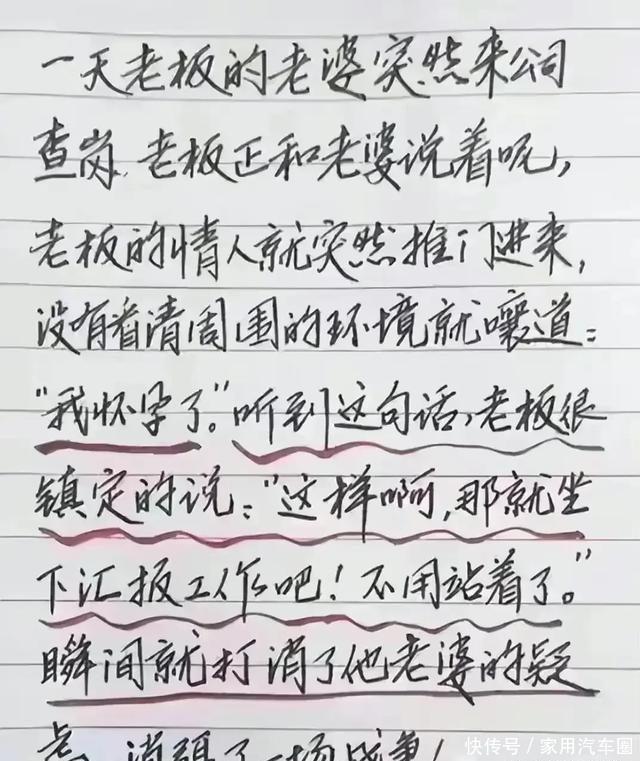 一天老板的老婆突然来公司
查岗，老板正和老婆说着呢，
老板的情人就突然推门进来，
没有看清周围的环境就嚷道：
“我怀孕了。”听到这句话，老板很
镇定的说：“这样啊，那就坐
下汇报工作吧！不用站着了。”
瞬间就打消了他老婆的疑
虑，消弭了一场战争！
快传号／家用汽车圈